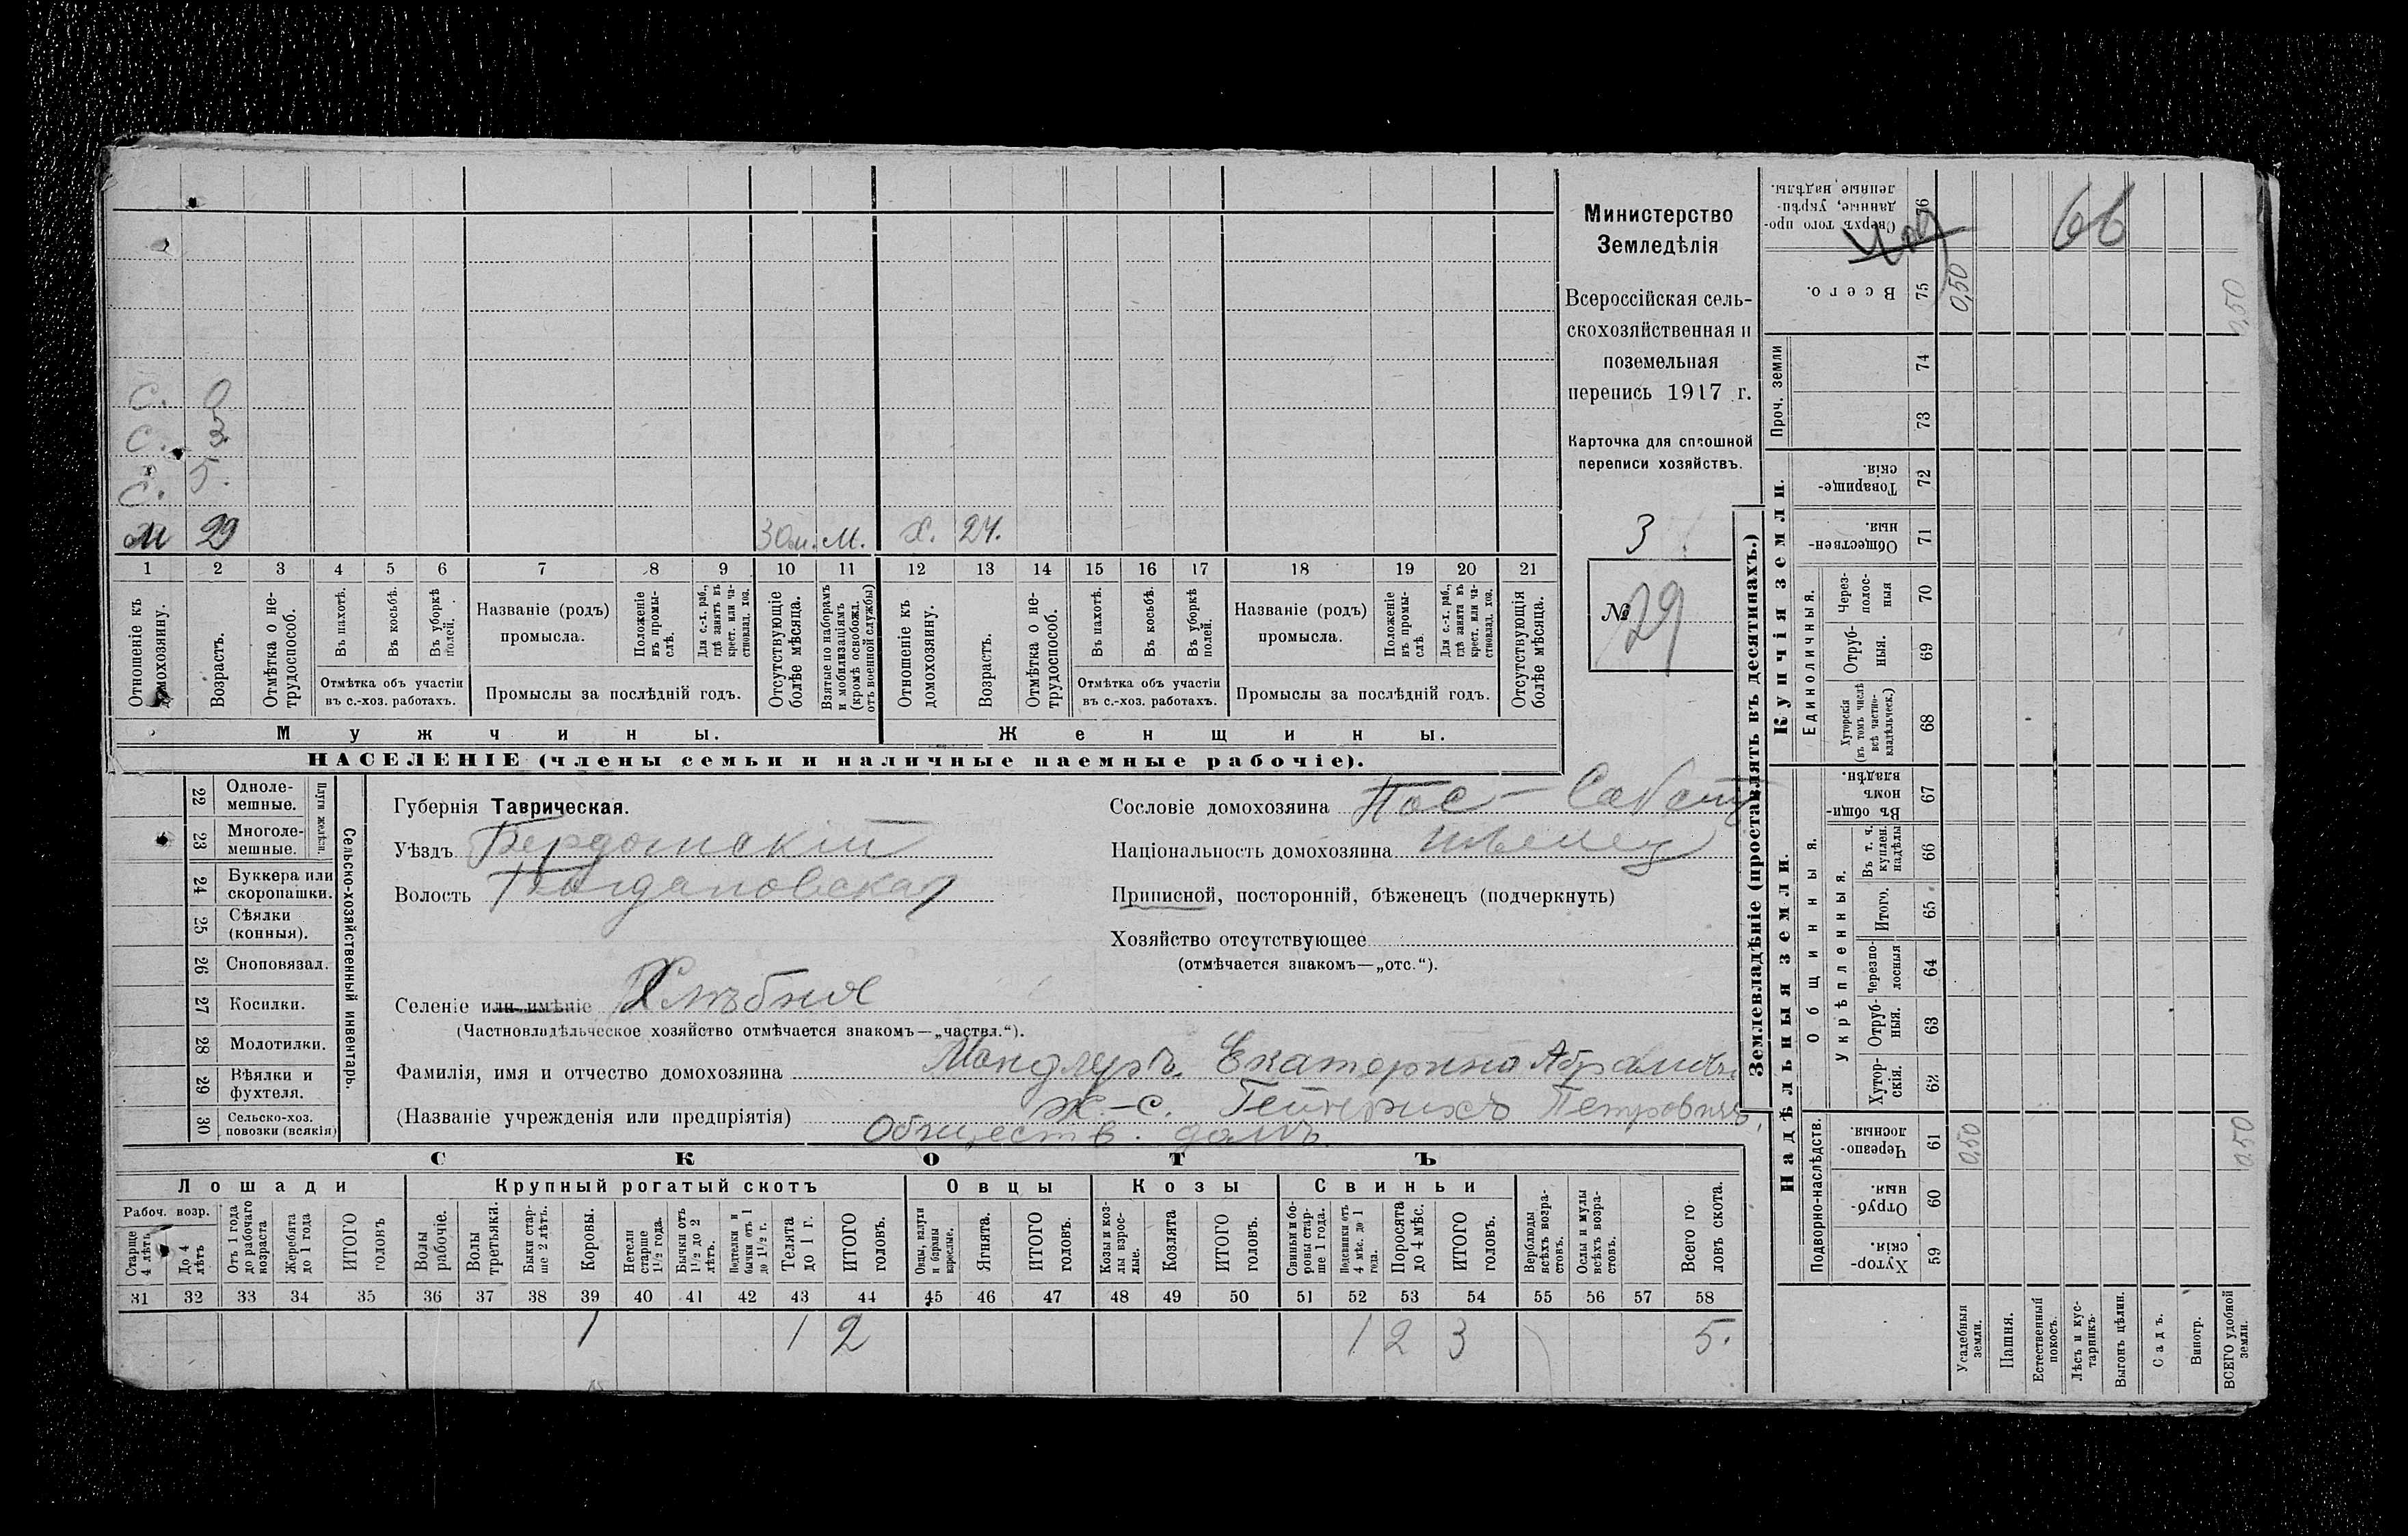 Министерство
Земледѣлія
Всероссійская сель-
скохозяйственная и
поземельная
перепись 1917 г.
Карточка для сплошной
переписи хозяйствъ.
3
№ 29
С. 0
С. 3
С. 5.
М 29 30 м. М. Х. 24.
1 2 3 4 5 6 7 8 9 10 11 12 13 14 15 16 17 18 19 20 21
Отношеніе къ домохозяину.
Возрастъ.
Отмѣтка о не-трудоспособ.
Въ пахотѣ.
Въ косьбѣ.
Въ уборкѣ полей.
Отмѣтка объ участіи
въ с.-хоз. работахъ.
Названіе (родъ)
промысла.
Положеніе въ промы-слѣ.
Для с.-х. раб., гдѣ занятъ въ крест. или ча-стновлад. хоз.
Промыслы за послѣдній годъ.
Отсутствующіе болѣе мѣсяца.
Взятые по наборамъ и мобилизаціямъ (кромѣ освобожд. отъ военной службы)
Отношеніе къ домохозяину.
Возрастъ.
Отмѣтка о не-трудоспособ.
Въ пахотѣ.
Въ косьбѣ.
Въ уборкѣ полей.
Отмѣтка объ участіи
въ с.-хоз. работахъ.
Названіе (родъ)
промысла.
Положеніе въ промы-слѣ.
Для с.-х. раб., гдѣ занята въ крест. или ча-стновлад. хоз.
Промыслы за послѣдній годъ.
Отсутствующія болѣе мѣсяца.
Мужчины. Женщины.
НАСЕЛЕНІЕ (члены семьи и наличные наемные рабочіе).
22 Однолемешные.
23 Многолемешные.
Плуги желѣзн.
24 Буккера или скоропашки.
25 Сѣялки (конныя).
26 Сноповязал.
27 Косилки.
28 Молотилки.
29 Вѣялки и фухтеля.
30 Сельско-хоз. повозки (всякія)
Сельско-хозяйственный инвентарь.
Губернія Таврическая.
Уѣздъ Бердянскій
Волость Богдановская
Селеніе или имѣніе Хлѣбное
(Частновладѣльческое хозяйство отмѣчается знакомъ—„частвл.“).
Сословіе домохозяина Пос-
Національность домохозяина нѣмец
Приписной, посторонній, бѣженецъ (подчеркнуть)
Хозяйство отсутствующее
(отмѣчается знакомъ—„отс.“).
Фамилія, имя и отчество домохозяина Мандлеръ Екатерина Абрамов.
(Названіе учрежденія или предпріятія) Ж.-с. Гейнрихъ Петровичъ.
Обществ. домъ.
СКОТЪ
Лошади Крупный рогатый скотъ Овцы Козы Свиньи
Рабоч. возр.
Старше 4 лѣтъ
До 4 лѣтъ
Отъ 1 года до рабочаго возраста
Жеребята до 1 года
ИТОГО головъ
Волы рабочіе.
Волы третьяки.
Быки стар-ше 2 лѣтъ.
Коровы.
Нетели старше 1½ года.
Бычки отъ 1½ до 2 лѣтъ.
Подтелки и бычки отъ 1 до 1½ г.
Телята до 1 г.
ИТОГО головъ.
Овцы, валухи и бараны взрослые.
Ягнята.
ИТОГО головъ.
Козы и коз-лы взрос-лые.
Козлята
ИТОГО головъ.
Свиньи и бо-ровы стар-ше 1 года.
Подсвинки отъ 4 мѣс. до 1 года.
Поросята до 4 мѣс.
ИТОГО головъ.
Верблюды всѣхъ возра-стовъ.
Ослы и мулы всѣхъ возра-стовъ.
Всего го-ловъ скота.
31 32 33 34 35 36 37 38 39 40 41 42 43 44 45 46 47 48 49 50 51 52 53 54 55 56 57 58
1 1 2 1 2 3 5.
Землевладѣніе (проставлять въ десятинахъ.)
Надѣльныя земли. Купчія земли. Проч. земли
Подворно-наслѣдств.
Общинныя.
Укрѣпленныя.
Единоличныя.
Хутор-скія. 59
Отруб-ныя. 60
Черезпо-лосныя. 61
Хутор-скія. 62
Отруб-ныя. 63
Черезпо-лосныя 64
Итого. 65
Въ т. ч. куплен. надѣлы 66
Въ общин-номъ владѣн. 67
Хуторскія (въ томъ числѣ всѣ частно-владѣльческ.) 68
Отруб-ныя. 69
Через-полос-ныя 70
Обществен-ныя. 71
Товарище-скія. 72
73
74
Всего. 75
Сверхъ того про-данные, укрѣп-ленные надѣлы. 76
Усадебныя земли.
Пашня.
Естественный покосъ.
Лѣсъ и кус-тарникъ.
Выгонъ цѣлин.
Садъ.
Виногр.
ВСЕГО удобной земли.
0,50 0,50
0,50 0,50
66